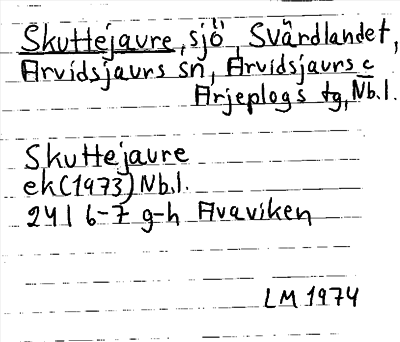 Skuttejaure, sjö, Svärdlandet,
Arvidsjaurs sn, Arvidsjaurs o
Arjeplogs tg, Nb.l.
Skuttejaure
ek (1973) Nb.l.
24 I 6-7 g-h Avaviken
LM 1974